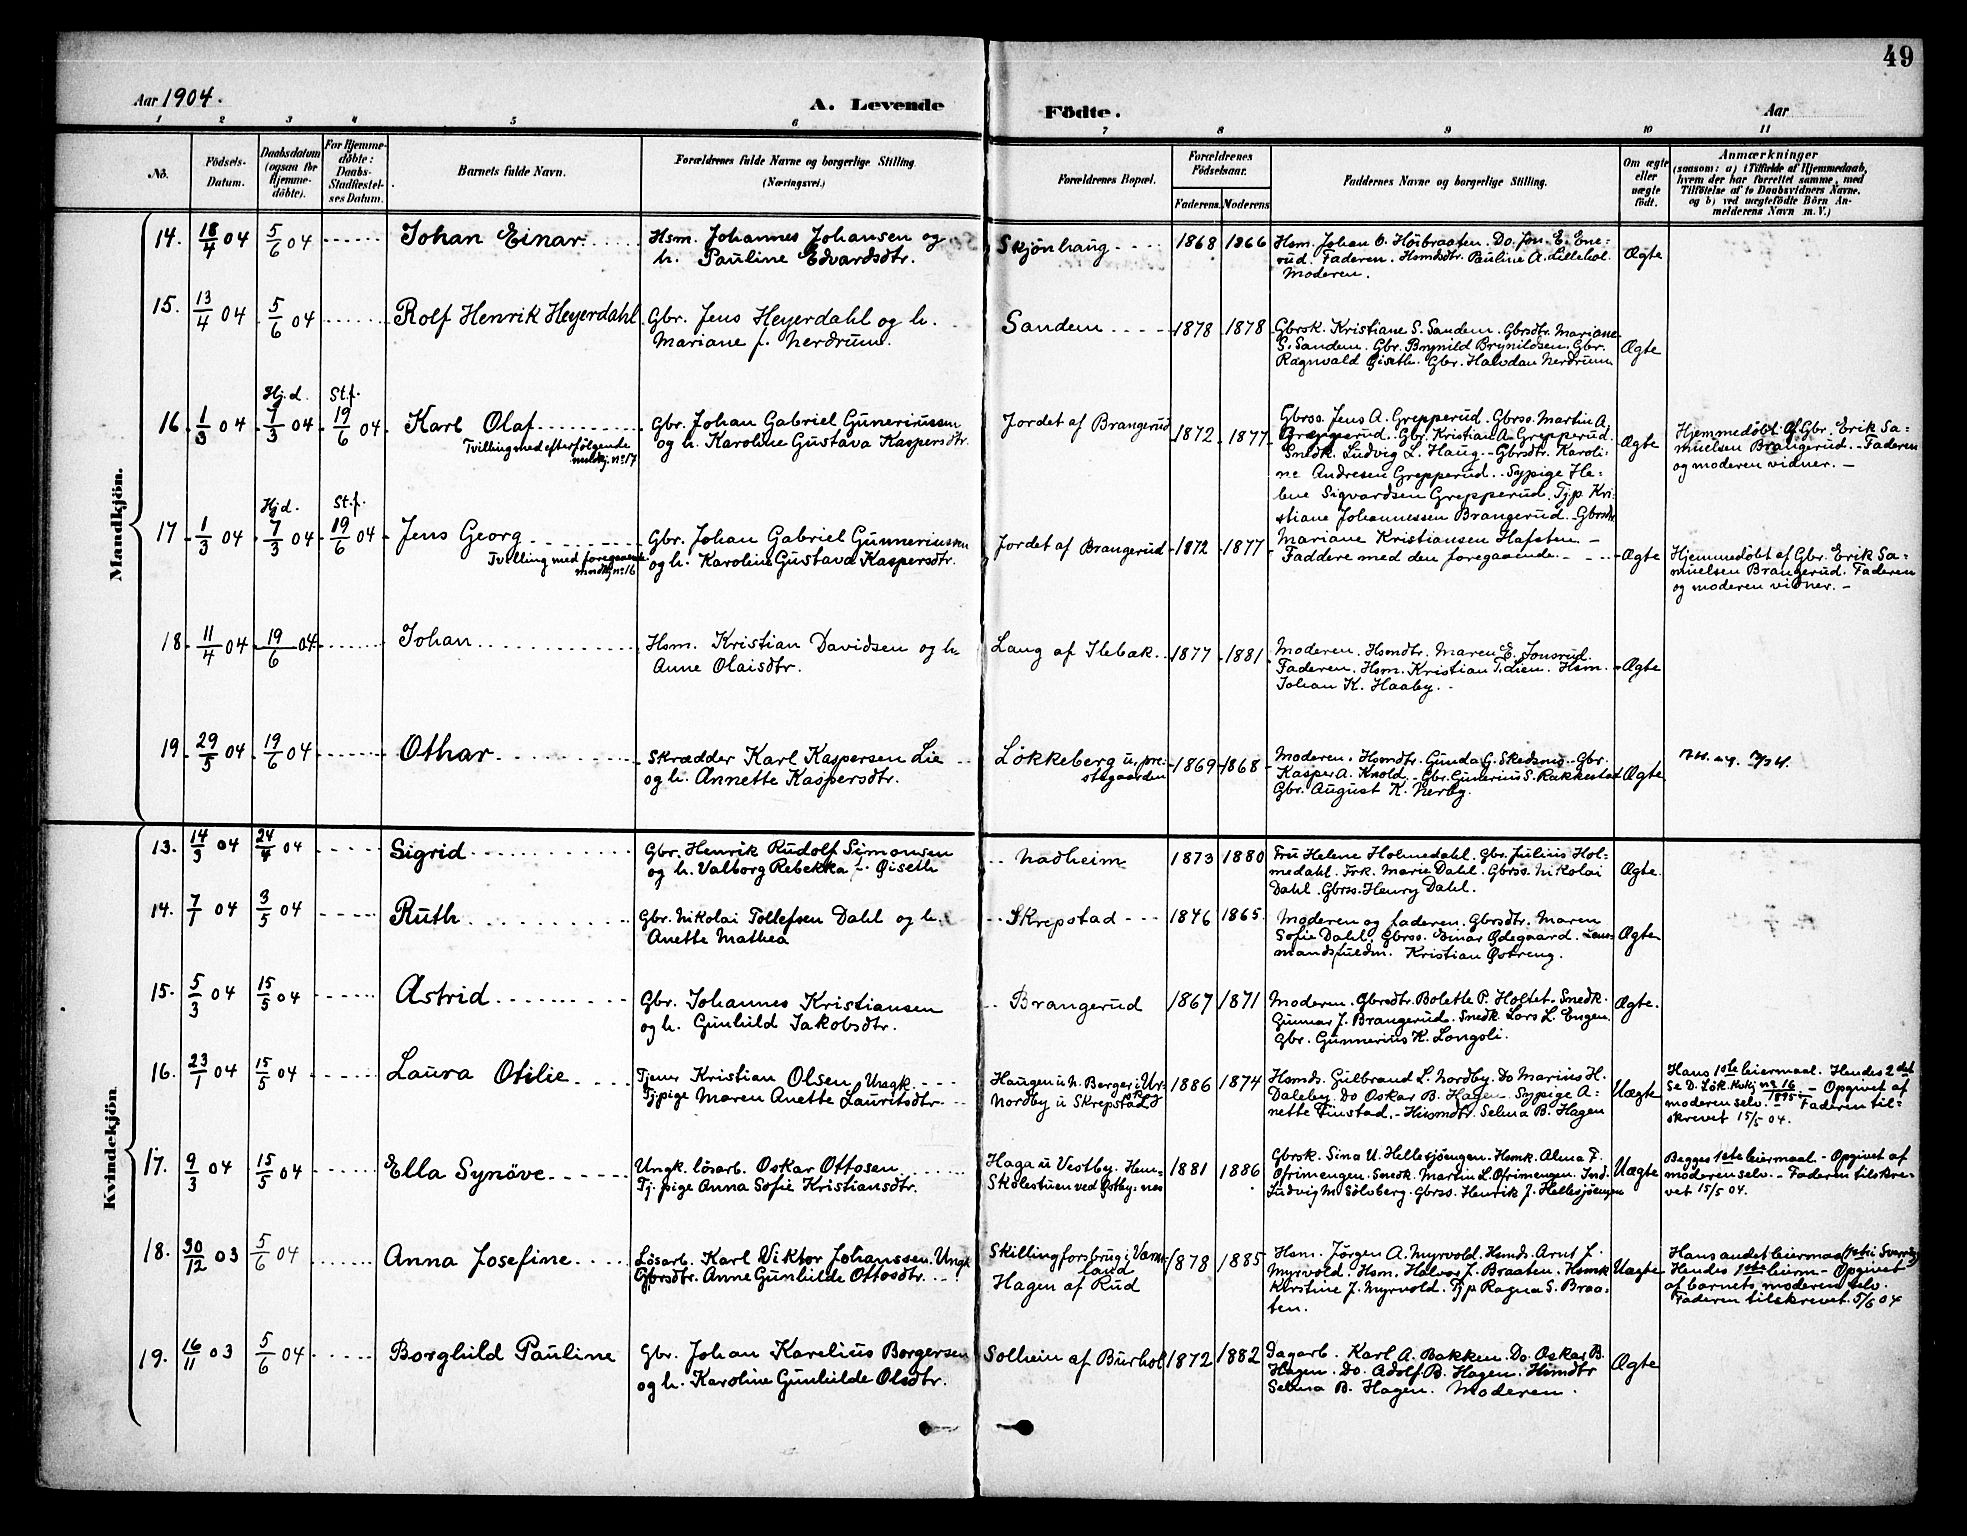 49
Aar 1904.
A. Levende
Födte.
Aar
1 2 3 4 5 6 7 8 9 10 11
No.
Födsels-
Datum.
Daabsdatum
(ogsaa for
Hjemme-
döbte).
For Hjemme-
döbte:
Daabs-
Stadfæstel-
ses Datum.
Barnets fulde Navn.
Forældrenes fulde Navne og borgerlige Stilling.
(Næringsvei.)
Forældrenes Bopæl.
Forældrenes
Födselsaar.
Faderens. Moderens
Faddernes Navne og borgerlige Stilling.
Om ægte
eller
uægte
födt.
Anmærkninger
(saasom: a) i Tilfælde af Hjemmedaab,
hvem der har forrettet samme, med
Tilföielse af to Daabsvidners Navne,
og b) ved uægtefödte Börn An-
melderens Navn m. V.)
Mandkjön.
14. 18/4 04 5/6 04 Johan Einar
Hsm. Johannes Johansen og
h. Pauline Edvardsdtr.
Skjönhaug 1868 1866
Hsm. Johan O. Höibraaten. Do. Jon. E. Ene-
rud. Faderen. Hsmdsdtr. Pauline A. Lillehol
Moderen.
Ægte
15. 13/4 04 5/6 04 Rolf Henrik Heyerdahl
Gbr. Jens Heyerdahl og h.
Mariane f. Nerdrum.
Sandem 1878 1878
Gbrsk. Kristiane S. Sandem. Gbrsdtr. Mariane
S. Sandem. Gbr. Brynild Brynildsen. Gbr.
Ragnvald Giseth. Gbr. Halvdan Nerdrum
Ægte
16. 1/3 04 Hj.d. 7/3 04 St.f. 19/6 04 Karl Olaf
Tvilling med efterfølgende
mdkj. no 17
Gbr. Johan Gabriel Guneriussen
og h. Karoline Gustava Kaspersdtr.
Jordet af Brangerud 1872 1877
Gbrss. Jens A. Grepperud. Gbrss. Martin A.
Grepperud. Gbr. Kristian A. Grepperud.
Snedk. Ludvig L. Haug. Gbrsdtr. Karoli-
ne Andresen Grepperud. Sypige He-
lene Sigvardsen Grepperud. Tjp. Kri-
stiane Johannessen Brangerud. Gbrsdtr
Mariane Kristiansen Hafsten. -
Ægte
Hjemmedøbt af Gbr. Erik Sa-
muelsen Brangerud. - Faderen
og moderen vidner. -
17 1/3 04 Hj.d. 7/3 04 St.f. 19/6 04 Jens Georg
Tvilling med foregaaende
mndkj. no 16
Gbr. Johan Gabriel Gunneriussen
og h. Karoline Gustava Kaspersdtr.
Jordet af Brangerud 1872 1877
Faddere med den foregaaende.
Ægte
Hjemmedøbt af Gbr. Erik Sa-
muelsen Brangerud. Faderen
og moderen vidner. -
18 11/4 04 19/6 04 Johan
Hsm. Kristian Davidsen og h.
Anne Olaisdtr.
Laug af Ilebæk. 1877 1881
Moderen. Hsmdtr. Maren E. Jonsrud.
Faderen. Hsm. Kristian T. Lien. Hsm.
Johan K. Haaby.
Ægte
19 29/5 04 19/6 04 Othar
Skrædder Karl Kaspersen Lie
og h. Annette Kaspersdtr.
Løkkeberg u. præ-
stegaarden 1869 1868
Moderen. Hsmdtr. Gunda G. Skedsmo. Gbr.
Kasper A. Knold. Gbr. Gunerius S. Rakkestad
Gbr. August K. Nerby.
Ægte
Kvindekjön
13. 14/3 04 24/4 04 Sigrid
Gbr. Henrik Rudolf Simonsen
og h. Valborg Rebekka f. Giseth
Nadheim 1873 1880
Fru Helene Holmedahl. Gbr. Julius Hol-
medahl. Frk. Marie Dahl. Gbrss. Nikolai
Dahl. Gbrss. Henry Dahl.
Ægte.
14. 7/1 04 3/5 04 Ruth
Gbr. Nikolai Tollefsen Dahl og h.
Anette Mathea
Skrepstad 1846 1865.
Moderen og Faderen. Gbrsdtr. Maren
Sofie Dahl. Gbrss. Einar Ødegaard. Lens-
mandsfuldm. Kristian Østreng.
Ægte
15. 5/3 04 15/5 04 Astrid
Gbr. Johannes Kristiansen
og h. Gunhild Jakobsdtr.
Brangerud 1867 1871
Moderen. Gbrsdtr. Bolette P. Holtet. Snedk.
Gunnar J. Brangerud. Snedk. Lars L. Engen.
Gbr. Gunnerius K. Langsli.
Ægte.
16. 23/1 04 15/5 04 Laura Otilie
Tjener Kristian Olsen Ungk.
Tjpige Maren Anette Lauritsdtr.
Haugen u. N. Berger i Ur-
Nordby u Skrepstad 1886 1874
Hsmds. Gulbrand L. Nordby. Do Marius H.
Daleby. Do Oskar B. Hagen. Sypige A-
nette Finstad. - Husmdtr. Selma B. Hagen
Uægte
Hans 1ste leiermaal. Hendes 2det
Se D. Lök. Kvkj no 16 1895 - Opgivet af
moderen selv. - Faderen til-
skrevet 15/5 04.
17. 9/3 04 15/5 04 Ella Synöve
Ungk. lösarb. Oskar Ottosen
Tj. pige Anna Sofie Kristiansdtr.
Haga u Vestby. Hem-
Skolestuen ved Østby. nes 1881 1886
Gbrsk. Sina U. Hellesjøengen. Hsmk. Alma F.
Ofrimengen. Snedk. Martin L. Ofrimengen. Ind.
Ludvig M. Sölvberg. Gbrss. Henrik J. Hellesjøengen
Uægte
Begges 1ste leiermaal. - Opgivet af
moderen selv. - Faderen tilskre-
vet 15/5 04.
18. 30/12 03 5/6 04 Anna Josefine
Løsarb. Karl Viktor Johanssen. Ungk
Gbrsdtr. Anne Gunhilde Ottosdtr.
Skillingforsbrug i Værm-
land
Hagen af Rud 1878 1885
Hsm. Jørgen A. Myrvold. Hsmds. Arnt J.
Myrvold. Hsm. Halvor J. Braaten. Hsmk
Kirstine J. Myrvold. Tjp Ragna S. Braa-
ten.
Uægte
Hans andet leiermaal (1ste i Sverrig)
Hendes 1ste leierm - Opgivet
af barnets moderen selv.
Faderen tilskrevet. 5/6 04
19. 16/11 03 5/6 04 Borghild Pauline
Gbr. Johan Karelius Borgersen
og h. Karoline Gunhilde Olsdtr.
Solheim af Burhol 1872 1882
Dagarb. Karl A. Bakken. Do. Oskar B.
Hagen. Do. Adolf B. Hagen. Hsmdtr
Selma B. Hagen. Moderen.
Ægte